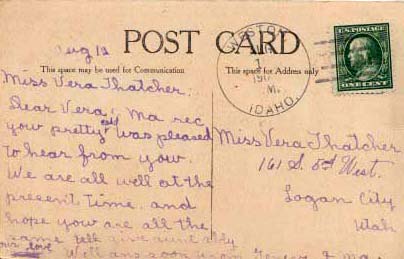 Aug 12
POST CARD
This space may be used for Communication
This space for Address only
WESTON
1
M.
IDAHO.
U.S. POSTAGE
ONE CENT
Miss Vera Thatcher:
Dear Vera, Ma rec
your pretty was pleased
to hear from you.
We are all well at the
present time. and
hope you are all the
same tell give aunt
our love
Well ans soon from & Ma
Miss Vera Thatcher
161 S. 5d West.
Logan City
Utah